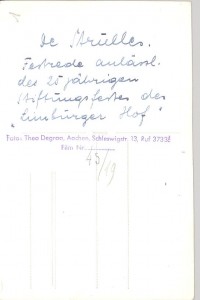 De Brülles.
Festrede anlässl.
des 25 jährigen
Stiftungsfestes des
"Limburger Hof"
Foto: Theo Degrau, Aachen, Schleswigstr. 13, Ruf 37332
Film Nr.
43/19